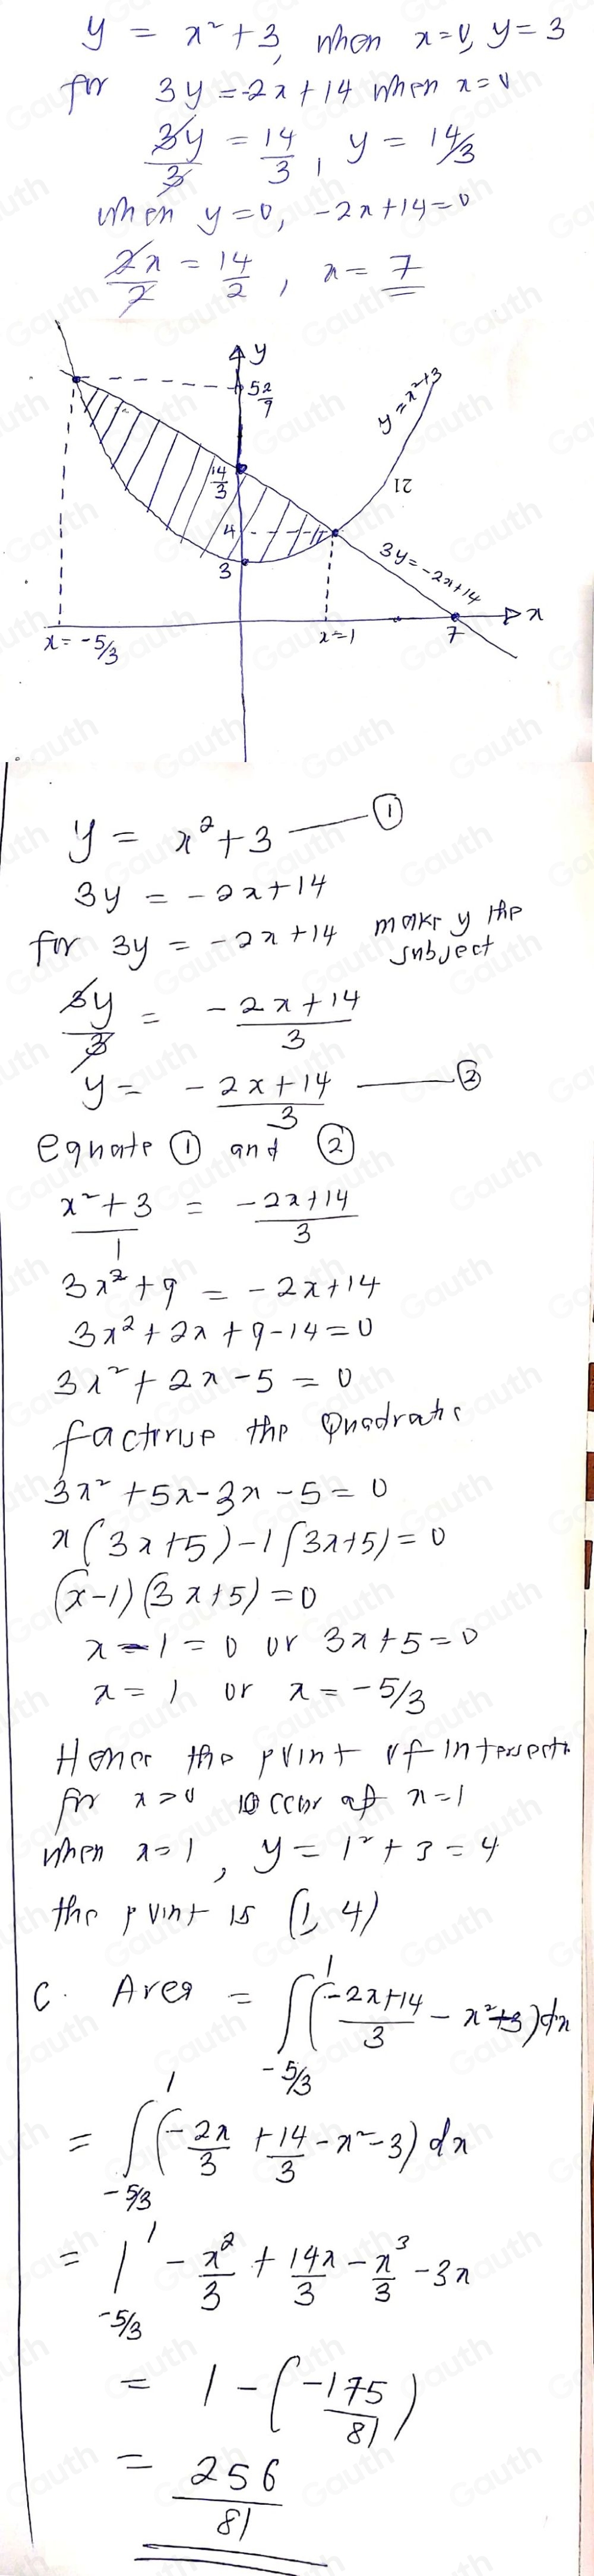 y = x² + 3, when x=0, y = 3
for 3y = -2x + 14 when x=0
3y/3 = 14/3, y = 14/3
when y=0, -2x+14=0
2x/2 = 14/2, x = 7
y
5 2/9
y = x²+3
14/3
4
3
3y=-2x+14
x
x = -5/3
x=1
7
y = x² + 3 —— ①
3y = -2x+14
for 3y = -2x+14 make y the subject
3y/3 = -2x+14/3
y = -2x+14/3 —— ②
equate ① and ②
x²+3/1 = -2x+14/3
3x²+9 = -2x+14
3x²+2x+9-14=0
3x²+2x-5=0
factorise the Quadratic
3x²+5x-3x-5=0
x(3x+5)-1(3x+5)=0
(x-1)(3x+5)=0
x-1=0 or 3x+5=0
x=1 or x=-5/3
Hence the point of intersecti
for x>0 occur at x=1
when x=1, y=1²+3=4
the point is (1,4)
C. Area = ∫₋₅/₃¹ (-2x+14/3 - x²+3)dx
= ∫₋₅/₃¹ (-2x/3 + 14/3 - x² - 3) dx
= |₋₅/₃¹ -x²/3 + 14x/3 - x³/3 - 3x
= 1 - (-175/81)
= 256/81